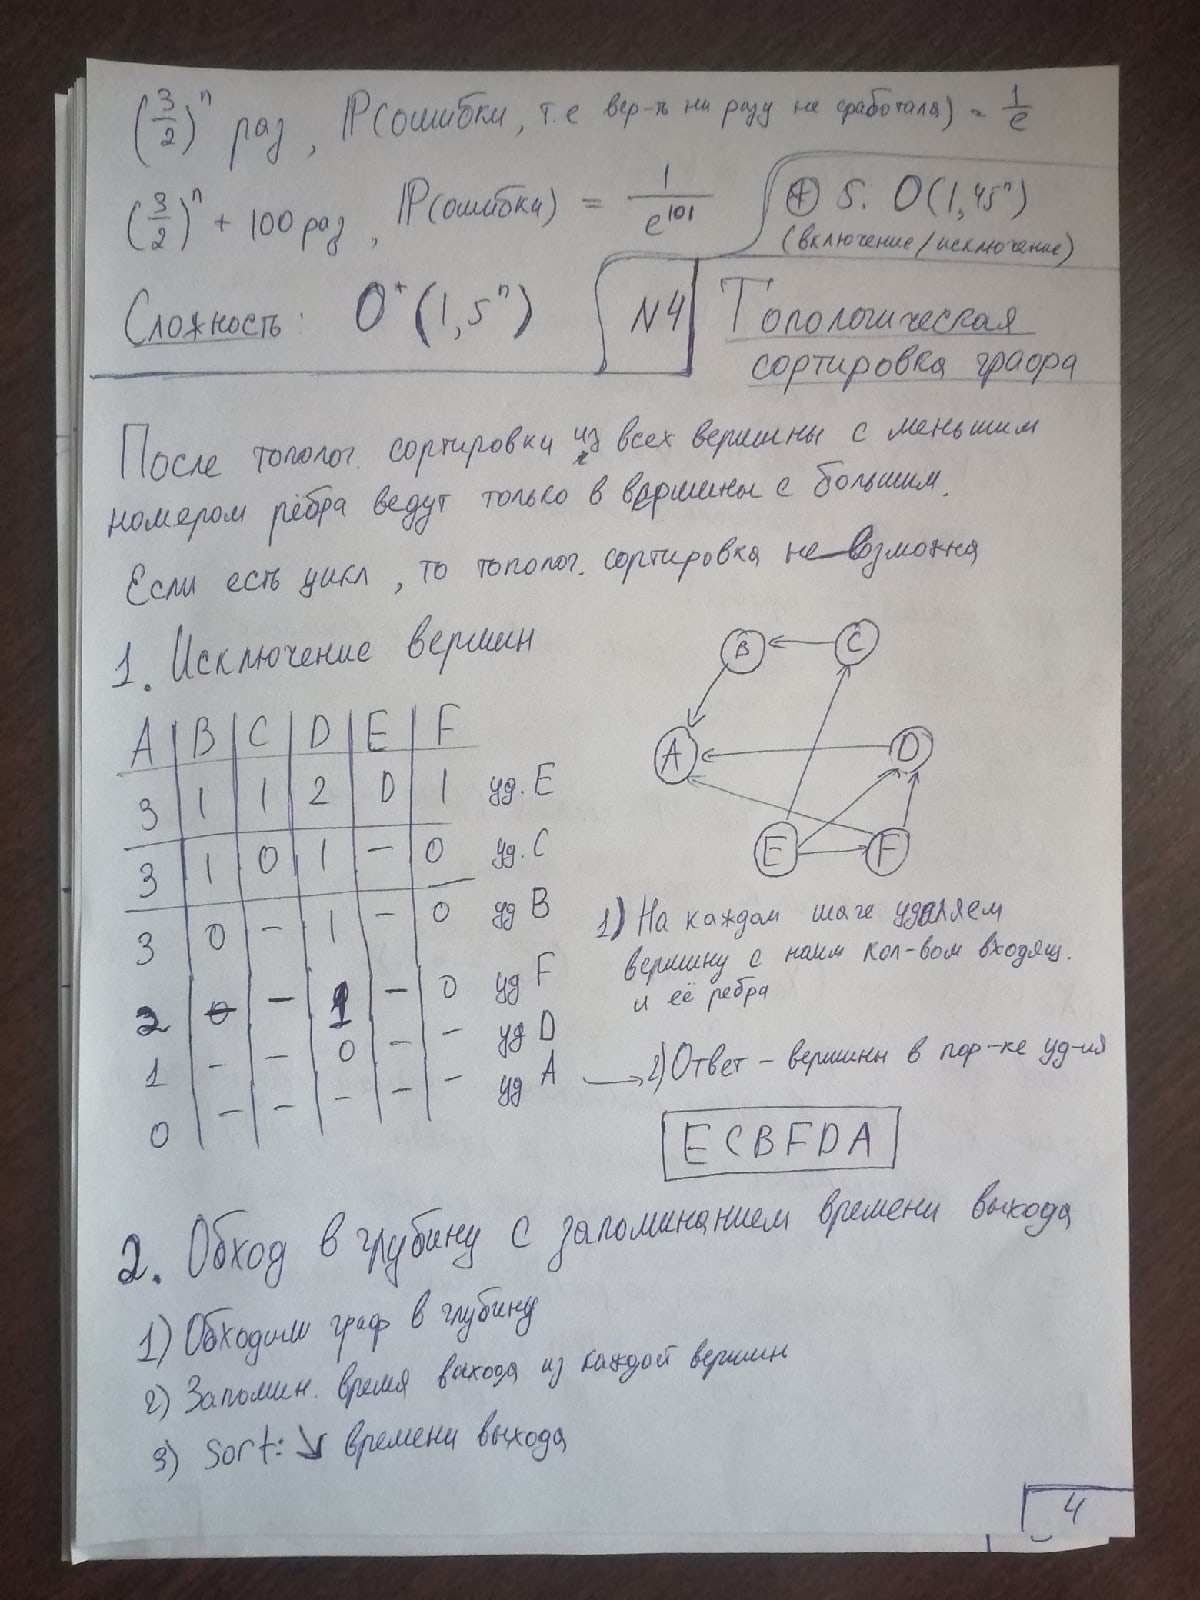 (3/2)^n раз, P(ошибки, т.е вер-ть ни разу не сработала) = 1/e
(3/2)^n + 100 раз, P(ошибки) = 1/e^101
⊕ 5. O(1,45^n)
(включение/исключение)
Сложность: O*(1,5^n)
N4 Топологическая
сортировка графа
После тополог. сортировки из всех вершины с меньшим
номером рёбра ведут только в вершины с большим.
Если есть цикл, то тополог. сортировка не возможна
1. Исключение вершин
A B C D E F
3 1 1 2 0 1 уд. E
3 1 0 1 – 0 уд. C
3 0 – 1 – 0 уд B
2 – 1 – 0 уд F
1 – – 0 – – уд D
0 – – – – – уд A
B C
A D
E F
1) На каждом шаге удаляем
вершину с наим кол-вом входящ.
и её ребра
2) Ответ – вершины в пор-ке уд-ия
E C B F D A
2. Обход в глубину с запоминанием времени выхода
1) Обходим граф в глубину
2) Запомин. время выхода из каждой вершин
3) Sort: ↘ времени выхода
4